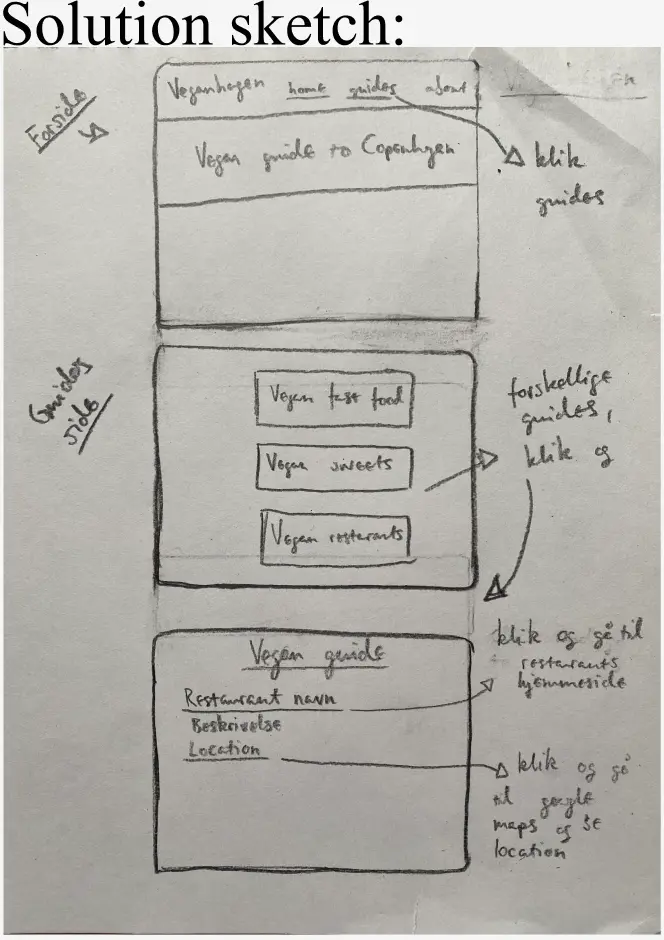 Solution sketch:
Forside
Veganhagen home guides about
Vegan guide to Copenhagen
klik
guides
Guides
side
Vegan fast food
Vegan sweets
Vegan resterants
forskellige
guides,
klik og
Vegan guide
Restaurant navn
Beskrivelse
Location
klik og gå til
restaurants
hjemmeside
klik og gå
til google
maps og se
location